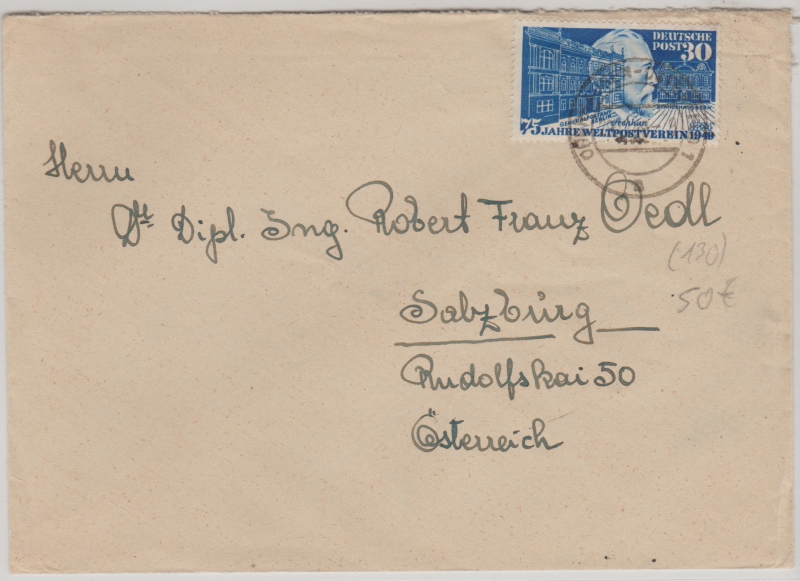 DEUTSCHE
POST 30
GENERALPOSTAMT
BERLIN
Stephan
75 JAHRE WELTPOSTVEREIN 1949
Herrn
Dr. Dipl. Ing. Robert Franz Oedl
(130)
50€
Salzburg
Rudolfskai 50
Österreich